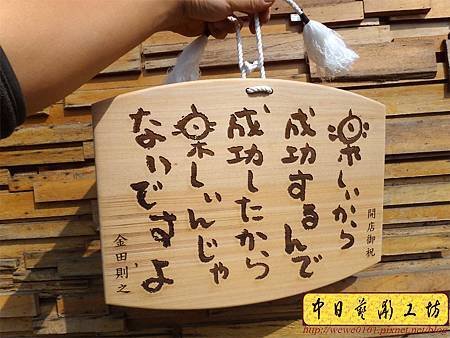 開店御祝
楽しいから
成功するんで
成功したから
楽しいんじゃ
ないですよ
金田則之
中日藝彫工坊
http://wewe0101.pixnet.net/blog